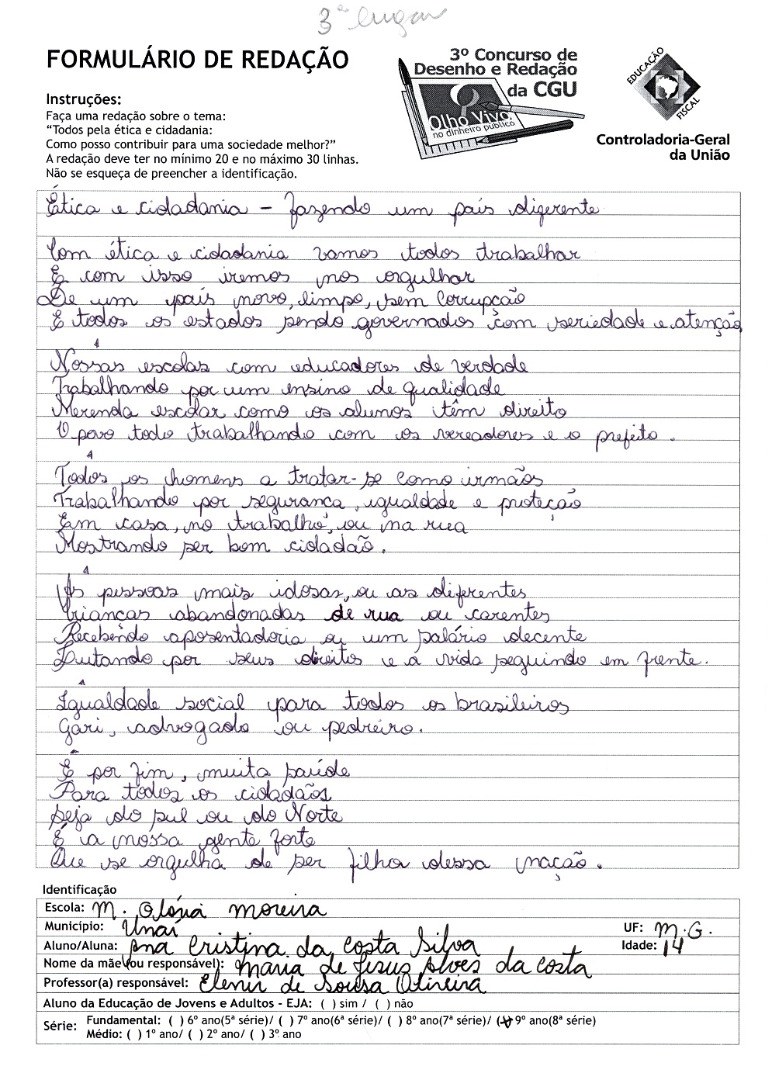 3º lugar
FORMULÁRIO DE REDAÇÃO
3º Concurso de
Desenho e Redação
da CGU
Olho Vivo
no dinheiro público
EDUCAÇÃO
FISCAL
Controladoria-Geral
da União
Instruções:
Faça uma redação sobre o tema:
“Todos pela ética e cidadania:
Como posso contribuir para uma sociedade melhor?”
A redação deve ter no mínimo 20 e no máximo 30 linhas.
Não se esqueça de preencher a identificação.
Ética e cidadania – fazendo um país digerente
Com ética e cidadania vamos todos trabalhar
E com isso iremos nos orgulhar
De um país novo, limpo, sem Corrupção
E todos os estados sendo governados com seriedade e atenção
Nossas escolas com educadores de verdade
Trabalhando por um ensino de qualidade
Merenda escolar como os alunos têm direito
O povo todo trabalhando com os vereadores e o prefeito.
Todos os homens a tratar-se como irmãos
Trabalhando por segurança, igualdade e proteção
Em casa, no trabalho, ou na rua
Mostrando ser bom cidadão.
As pessoas mais idosas, ou as diferentes
Crianças abandonadas de rua ou carentes
Recebendo aposentadoria ou um salário decente
Lutando por seus direitos e a vida seguindo em frente.
Igualdade social para todos os brasileiros
Gari, advogado ou pedreiro.
E por fim, muita saúde
Para todos os cidadãos
Seja do sul ou do Norte
É a nossa gente forte
Que se orgulha de ser filha dessa nação.
Identificação
Escola: M. Glória Moreira
Município: Unaí UF: M.G.
Aluno/Aluna: Ana Cristina da Costa Silva Idade: 14
Nome da mãe (ou responsável): Maria de Jesus Alves da Costa
Professor(a) responsável: Elenir de Sousa Oliveira
Aluno da Educação de Jovens e Adultos - EJA: ( ) sim / ( ) não
Série: Fundamental: ( ) 6º ano(5ª série)/ ( ) 7º ano(6ª série)/ ( ) 8º ano(7ª série)/ (X) 9º ano(8ª série)
Médio: ( ) 1º ano/ ( ) 2º ano/ ( ) 3º ano